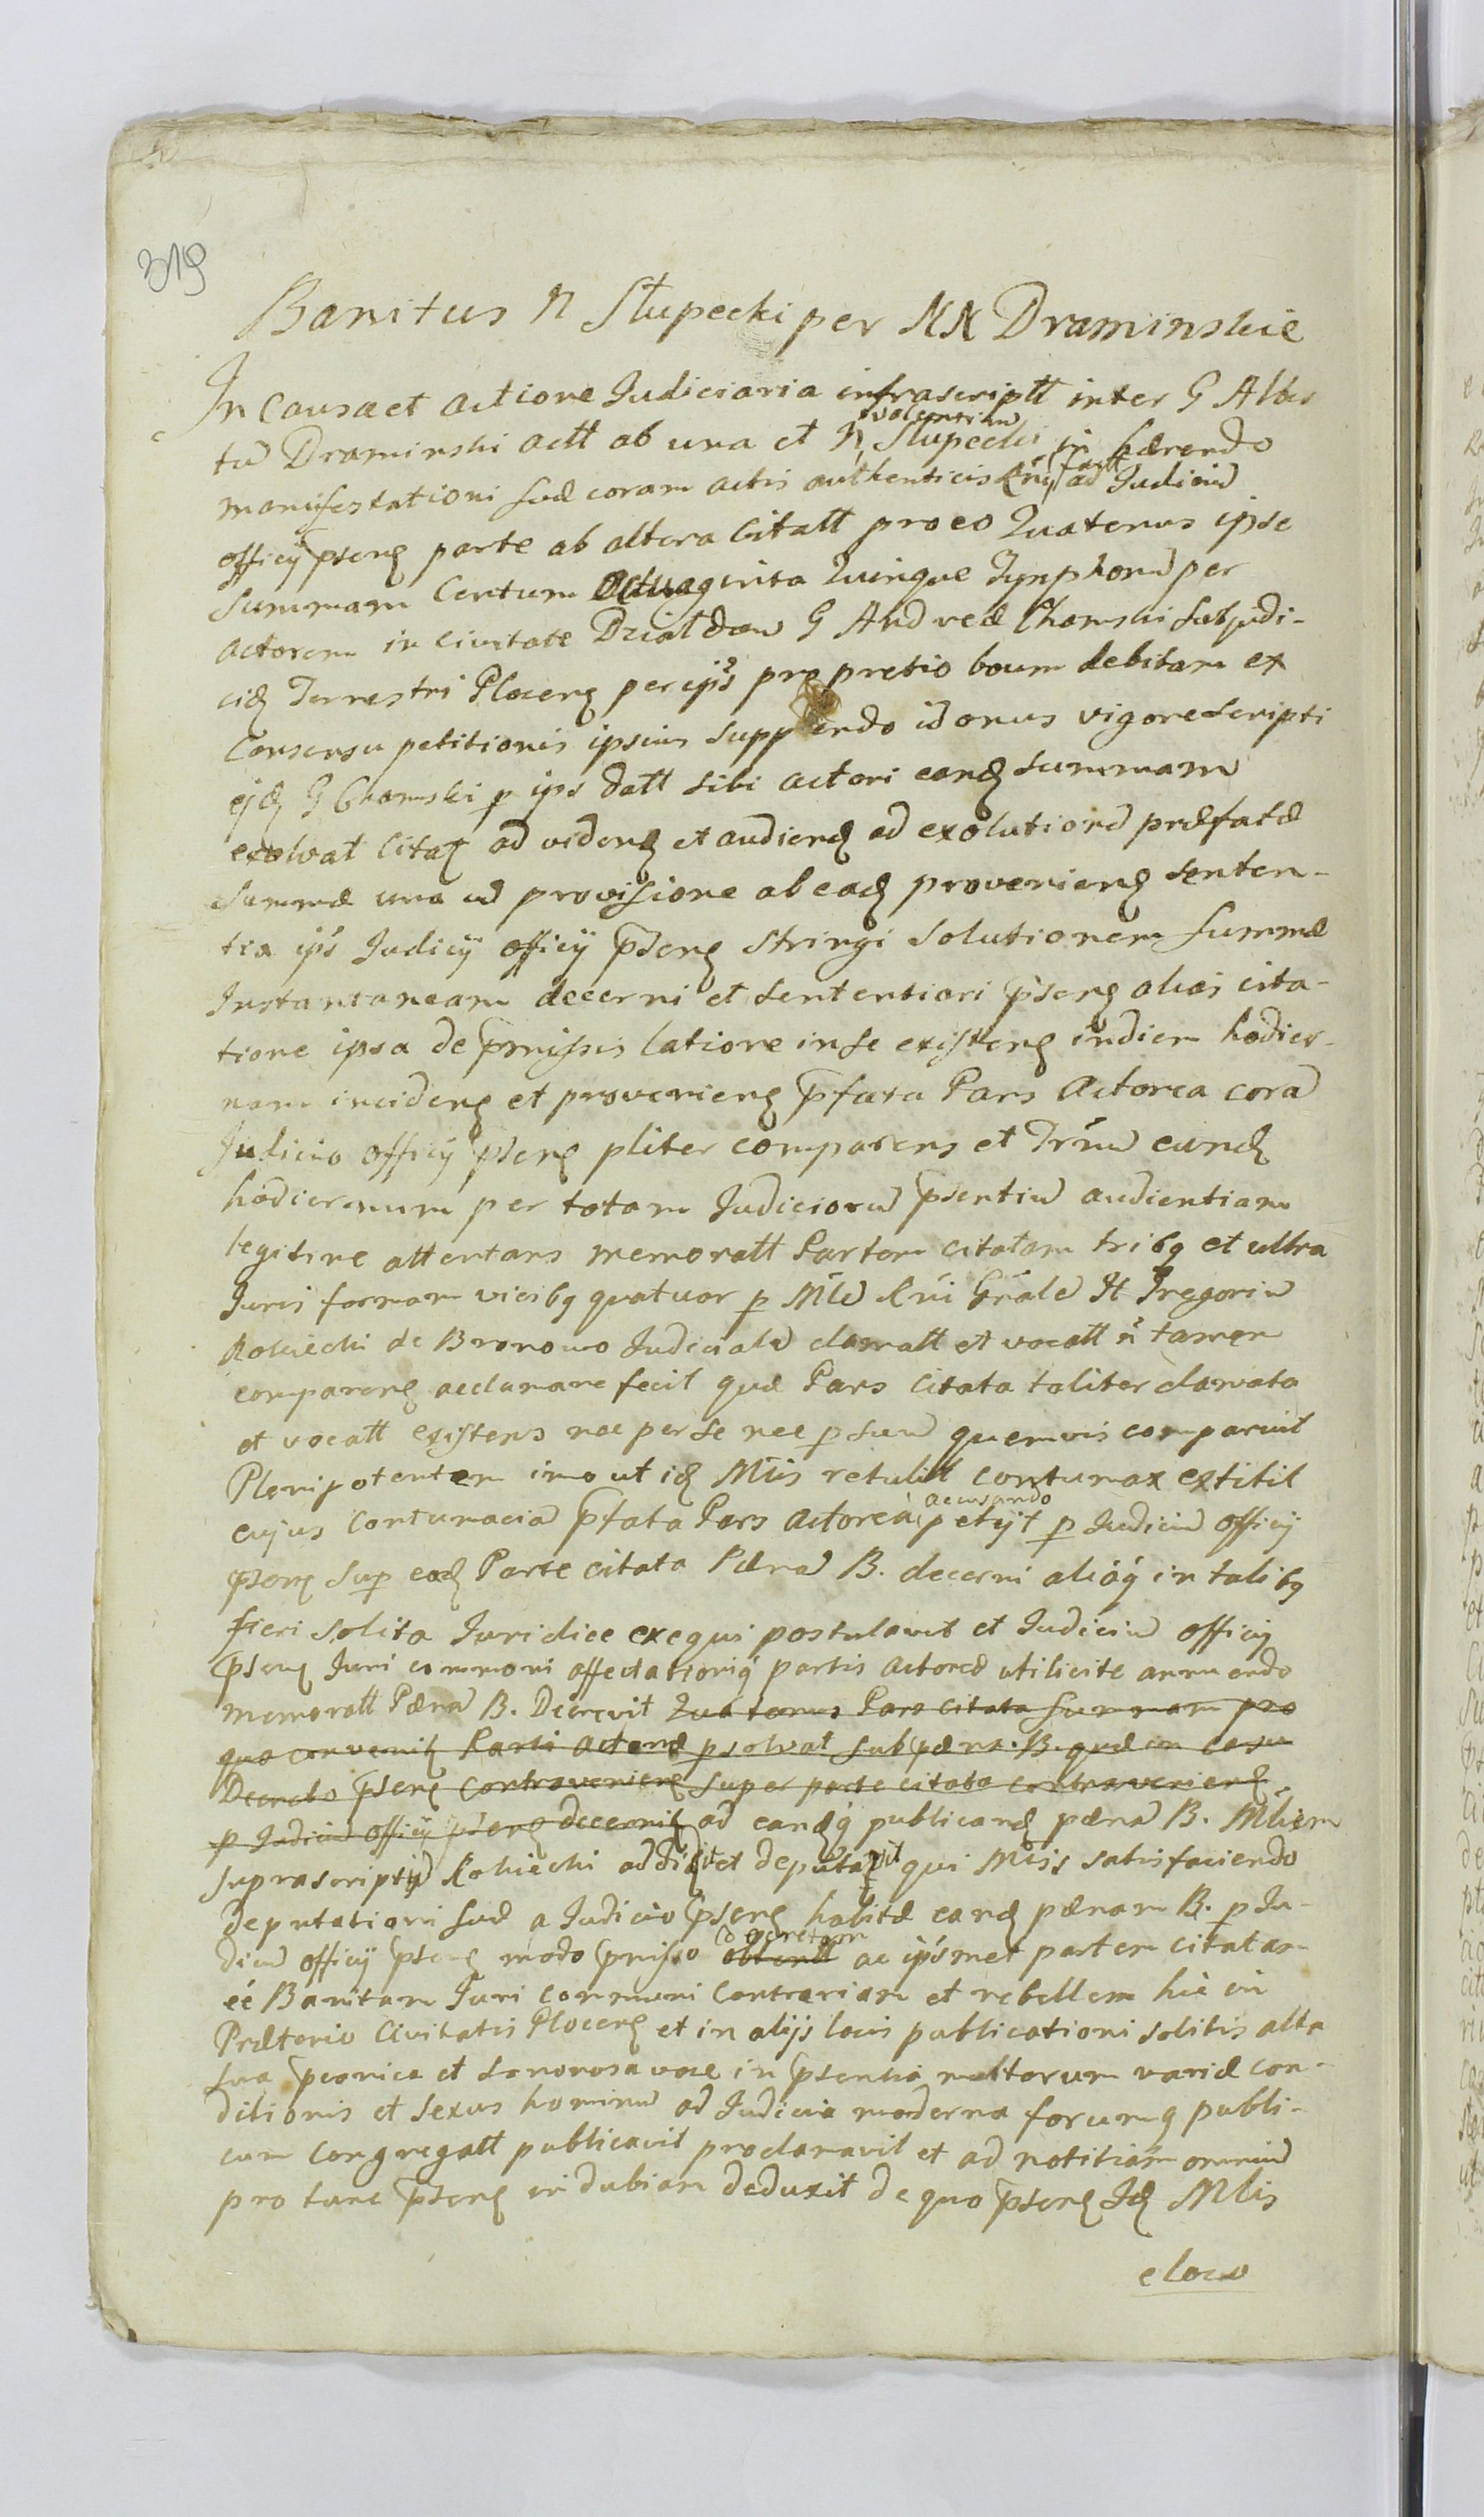 319
Banitus N Słupecki per NN Draminskie
In Causa et actione Judiciaria infrascriptt inter G Alber
tū Draminski actt ab una et N Valentinū Słupecki in hærendo
manifestationi suæ coram actis authenticis factt ad Judiciū
officij pseng parte ab altera Citatt pro eo Quatenus ipse
summam Centum Octuaginta Quinque Tynphonū per
actorem in Civitate Dzialdow G Andreæ Chamski Subjudi-
cią Terrestri Ploceng per ips pro pretio boum debitam ex
Consensu petitionis ipsius supp endo id onus vigore scripti
ejd G Chamski p ips datt sibi actori eand summam
exolvat Citaꝶ ad videnꝶ et audienꝶ ad exolutionē præfatæ
summæ una cū provisione ab eadꝶ provenienꝶ senten-
tia ips Judicij officij psenꝶ stringi solutionem summæ
Instantaneam decerni et sententiari psenꝶ alias cita-
tione ipsa de pmissis latiore in se existenꝶ in diem hodier-
nam incidenꝶ et provenienꝶ pfata Pars Actorea corā
Judicio officij psenꝶ pliter comparens et Trnū eundꝶ
hodiernum per totam Judiciorū psentiū audientiam
legitime attentans memoratt Partem citatam tribꝰ et ultra
Juris formam vicibꝰ quatuor p Mlē Rni Gnalē H Gregoriū
Rokiecki de Bronowo Judicialē clamatt et vocatt n tamen
comparenꝶ acclamare fecit quæ Pars Citata taliter clamata
et vocatt existens nec per se nec p suū quemvis comparuit
Plenipotentem imo ut idꝶ Mlis retulitt contumax extitit
cujus contumaciā pfata Pars Actorea accusando petijt p Judiciū officij
psenꝶ sup eadꝶ Parte citata Pænā B. decerni aliaq in talibꝰ
fieri solita Juridice exequi postulavit et Judiciū officij
psenꝶ Juri communi affectationiq partis actoreæ utilicite annuendo
memoratt Pænā B. Decrevit Quatenus Pars citata summam pro
qua convenitꝶ Parti actoreæ psolvat sub pæna B. quæ in casu
Decreto psenꝶ contravenienꝶ super parte citata contravenienꝶ
p Judiciū officij psenꝶ decernitꝶ ad eandꝶq publicandꝶ pænā B. Mlem
suprascriptū Rokiecki addidit et deputavit qui Mlis satisfaciendo
deputationi suæ a Judicio psenꝶ habitæ eandꝶ pænam B. p Ju-
diciū officij psenꝶ modo pmisso obtentt decretam ac ipsmet partem citatam
eé Banitam Juri communi Contrariam et rebellem hic in
Prætorio Civitatis Plocenꝶ et in alijs locis publicationi solitis alta
sua peonica et sonorosa voce in psentia multorum variæ con-
ditionis et sexus hominū ad Judicia moderna forumq publi-
cum congregatt publicavit proclamavit et ad notitiam omniū
pro tunc psenꝶ indubiam deduxit de quo psenꝶ Idꝶ Mlis
e loco